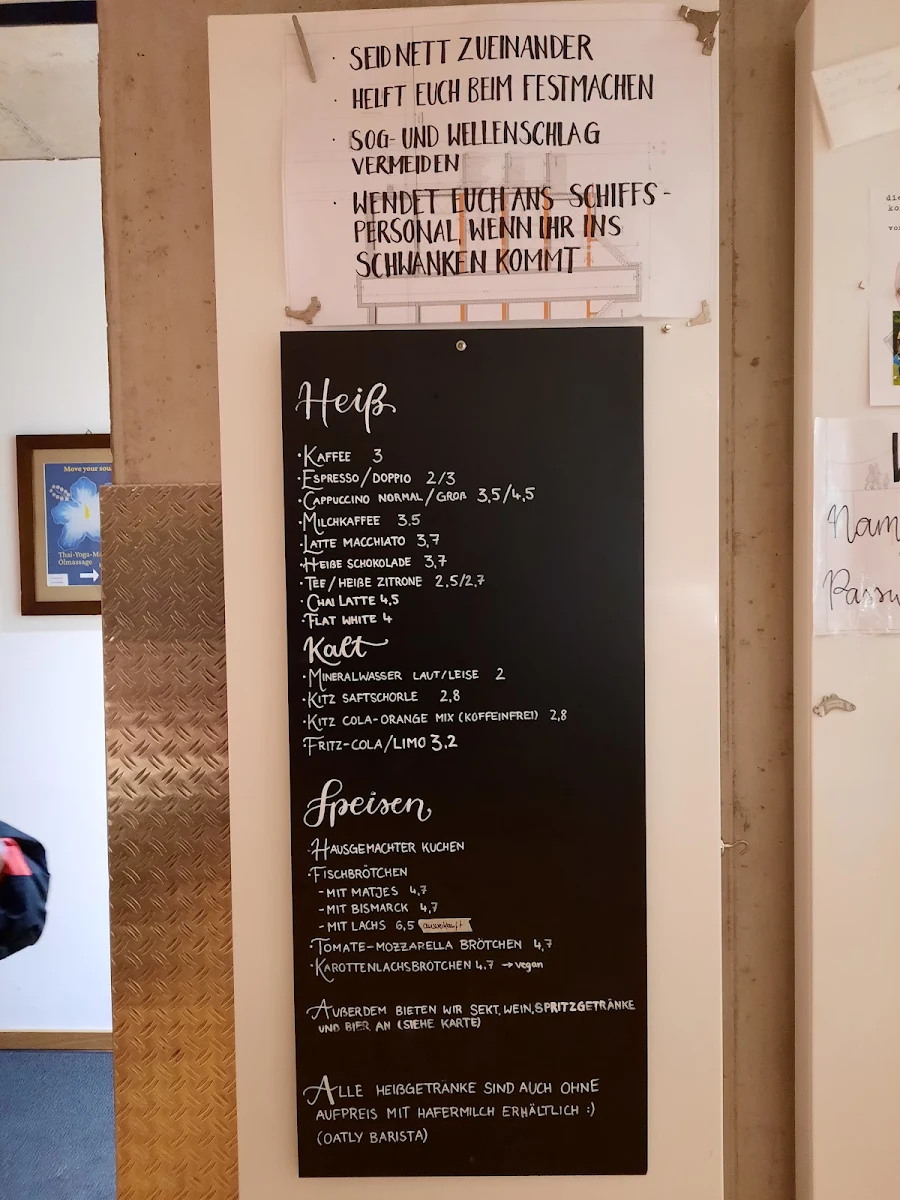 · SEID NETT ZUEINANDER
· HELFT EUCH BEIM FESTMACHEN
· SOG- UND WELLENSCHLAG
VERMEIDEN
· WENDET EUCH ANS SCHIFFS-
PERSONAL, WENN IHR INS
SCHWANKEN KOMMT
Heiß
·KAFFEE 3
·ESPRESSO/DOPPIO 2/3
·CAPPUCCINO NORMAL/GROß 3,5/4,5
·MILCHKAFFEE 3.5
·LATTE MACCHIATO 3,7
·HEIßE SCHOKOLADE 3,7
·TEE/HEIßE ZITRONE 2,5/2,7
·CHAI LATTE 4,5
·FLAT WHITE 4
Kalt
·MINERALWASSER LAUT/LEISE 2
·KITZ SAFTSCHORLE 2,8
·KITZ COLA-ORANGE MIX (KOFFEINFREI) 2,8
·FRITZ-COLA/LIMO 3.2
Speisen
·HAUSGEMACHTER KUCHEN
·FISCHBRÖTCHEN
-MIT MATJES 4,7
-MIT BISMARCK 4,7
-MIT LACHS 6,5 ausverkauft
·TOMATE-MOZZARELLA BRÖTCHEN 4,7
·KAROTTENLACHSBRÖTCHEN 4,7 →vegan
AUßERDEM BIETEN WIR SEKT, WEIN, SPRITZGETRÄNKE
UND BIER AN (SIEHE KARTE)
ALLE HEIßGETRÄNKE SIND AUCH OHNE
AUFPREIS MIT HAFERMILCH ERHÄLTLICH :)
(OATLY BARISTA)
Move your sou
Thai-Yoga-Ma
Ölmassage
die
ko
vo
Nam
Passw